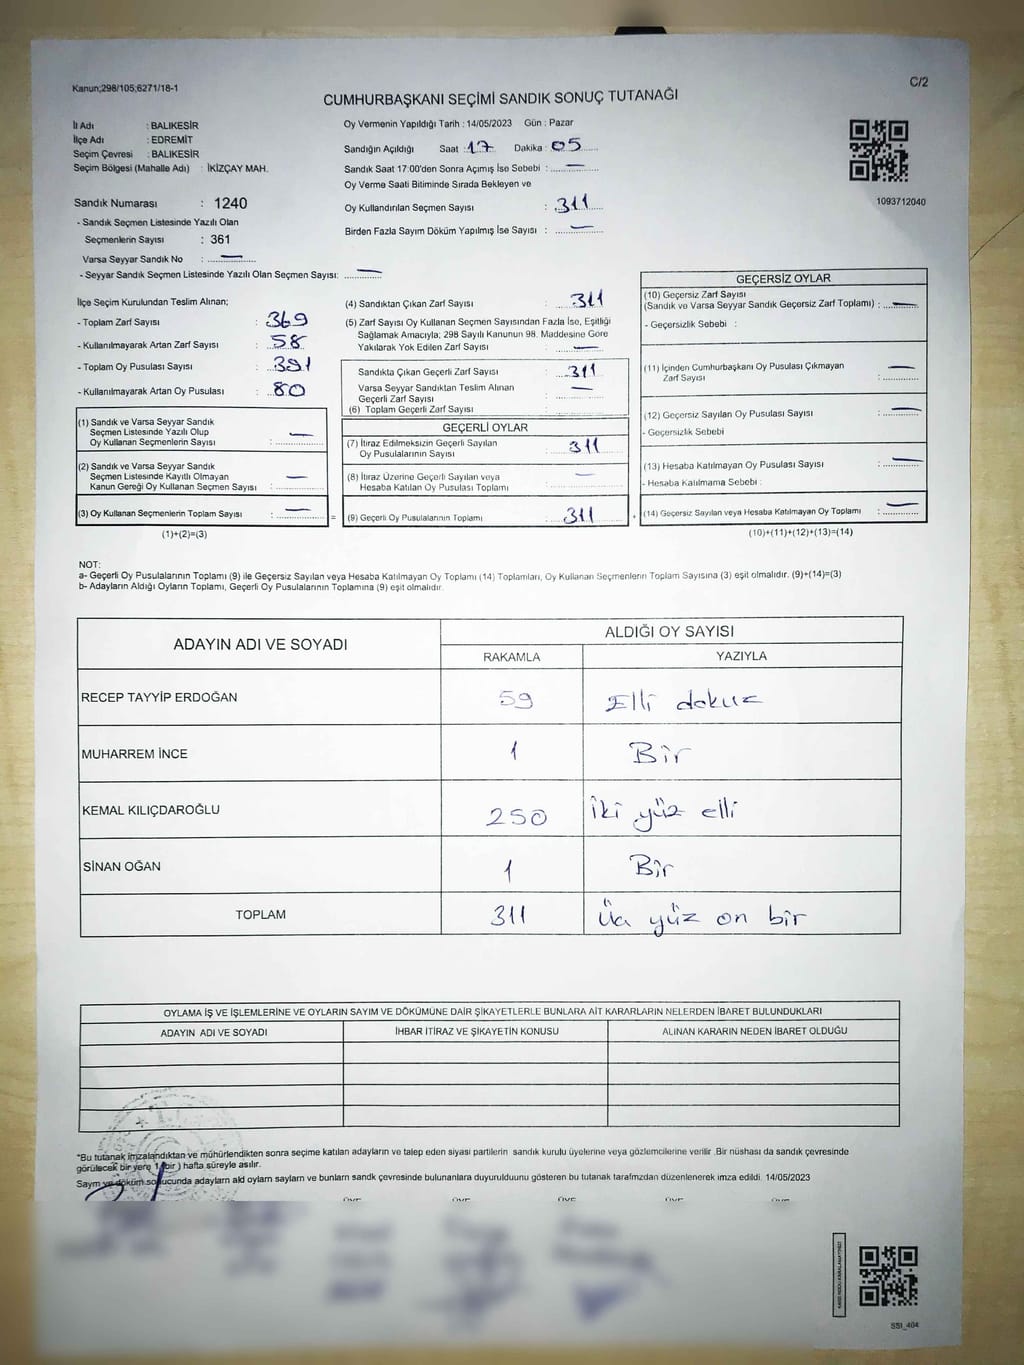 Kanun;298/105;6271/18-1
C/2
CUMHURBAŞKANI SEÇİMİ SANDIK SONUÇ TUTANAĞI
İl Adı : BALIKESİR
İlçe Adı : EDREMİT
Seçim Çevresi : BALIKESİR
Seçim Bölgesi (Mahalle Adı) : İKİZÇAY MAH.
Sandık Numarası : 1240
- Sandık Seçmen Listesinde Yazılı Olan
Seçmenlerin Sayısı : 361
Varsa Seyyar Sandık No : —
- Seyyar Sandık Seçmen Listesinde Yazılı Olan Seçmen Sayısı: —
Oy Vermenin Yapıldığı Tarih : 14/05/2023 Gün : Pazar
Sandığın Açıldığı Saat : 17 Dakika : 05
Sandık Saat 17:00'den Sonra Açımış İse Sebebi : —
Oy Verme Saati Bitiminde Sırada Bekleyen ve
Oy Kullandırılan Seçmen Sayısı : 311
Birden Fazla Sayım Döküm Yapılmış İse Sayısı : —
1093712040
İlçe Seçim Kurulundan Teslim Alınan;
- Toplam Zarf Sayısı : 369
- Kullanılmayarak Artan Zarf Sayısı : 58
- Toplam Oy Pusulası Sayısı : 391
- Kullanılmayarak Artan Oy Pusulası : 80
(1) Sandık ve Varsa Seyyar Sandık
Seçmen Listesinde Yazılı Olup
Oy Kullanan Seçmenlerin Sayısı : —
(2) Sandık ve Varsa Seyyar Sandık
Seçmen Listesinde Kayıtlı Olmayan
Kanun Gereği Oy Kullanan Seçmen Sayısı : —
(3) Oy Kullanan Seçmenlerin Toplam Sayısı : — =
(1)+(2)=(3)
(4) Sandıktan Çıkan Zarf Sayısı : 311
(5) Zarf Sayısı Oy Kullanan Seçmen Sayısından Fazla İse, Eşitliği
Sağlamak Amacıyla; 298 Sayılı Kanunun 98. Maddesine Göre
Yakılarak Yok Edilen Zarf Sayısı : —
Sandıkta Çıkan Geçerli Zarf Sayısı : 311
Varsa Seyyar Sandıktan Teslim Alınan
Geçerli Zarf Sayısı : —
(6) Toplam Geçerli Zarf Sayısı :
GEÇERLİ OYLAR
(7) İtiraz Edilmeksizin Geçerli Sayılan
Oy Pusulalarının Sayısı : 311
(8) İtiraz Üzerine Geçerli Sayılan veya
Hesaba Katılan Oy Pusulası Toplamı : —
(9) Geçerli Oy Pusulalarının Toplamı : 311 +
GEÇERSİZ OYLAR
(10) Geçersiz Zarf Sayısı
(Sandık ve Varsa Seyyar Sandık Geçersiz Zarf Toplamı) : —
- Geçersizlik Sebebi :
(11) İçinden Cumhurbaşkanı Oy Pusulası Çıkmayan
Zarf Sayısı : —
(12) Geçersiz Sayılan Oy Pusulası Sayısı : —
- Geçersizlik Sebebi
(13) Hesaba Katılmayan Oy Pusulası Sayısı : —
- Hesaba Katılmama Sebebi :
(14) Geçersiz Sayılan veya Hesaba Katılmayan Oy Toplamı : —
(10)+(11)+(12)+(13)=(14)
NOT:
a- Geçerli Oy Pusulalarının Toplamı (9) ile Geçersiz Sayılan veya Hesaba Katılmayan Oy Toplamı (14) Toplamları, Oy Kullanan Seçmenlerin Toplam Sayısına (3) eşit olmalıdır. (9)+(14)=(3)
b- Adayların Aldığı Oyların Toplamı, Geçerli Oy Pusulalarının Toplamına (9) eşit olmalıdır.
ADAYIN ADI VE SOYADI ALDIĞI OY SAYISI
RAKAMLA YAZIYLA
RECEP TAYYİP ERDOĞAN 59 Elli dokuz
MUHARREM İNCE 1 Bir
KEMAL KILIÇDAROĞLU 250 İki yüz elli
SİNAN OĞAN 1 Bir
TOPLAM 311 Üç yüz on bir
OYLAMA İŞ VE İŞLEMLERİNE VE OYLARIN SAYIM VE DÖKÜMÜNE DAİR ŞİKAYETLERLE BUNLARA AİT KARARLARIN NELERDEN İBARET BULUNDUKLARI
ADAYIN ADI VE SOYADI İHBAR İTİRAZ VE ŞİKAYETİN KONUSU ALINAN KARARIN NEDEN İBARET OLDUĞU
*Bu tutanak imzalandıktan ve mühürlendikten sonra seçime katılan adayların ve talep eden siyasi partilerin sandık kurulu üyelerine veya gözlemcilerine verilir .Bir nüshası da sandık çevresinde
görülecek bir yere 1 (bir ) hafta süreyle asılır.
Sayım ve döküm sonucunda adayların ald oyların sayları ve bunların sandk çevresinde bulunanlara duyurulduunu gösteren bu tutanak tarafmzdan düzenlenerek imza edildi. 14/05/2023
SSI_404